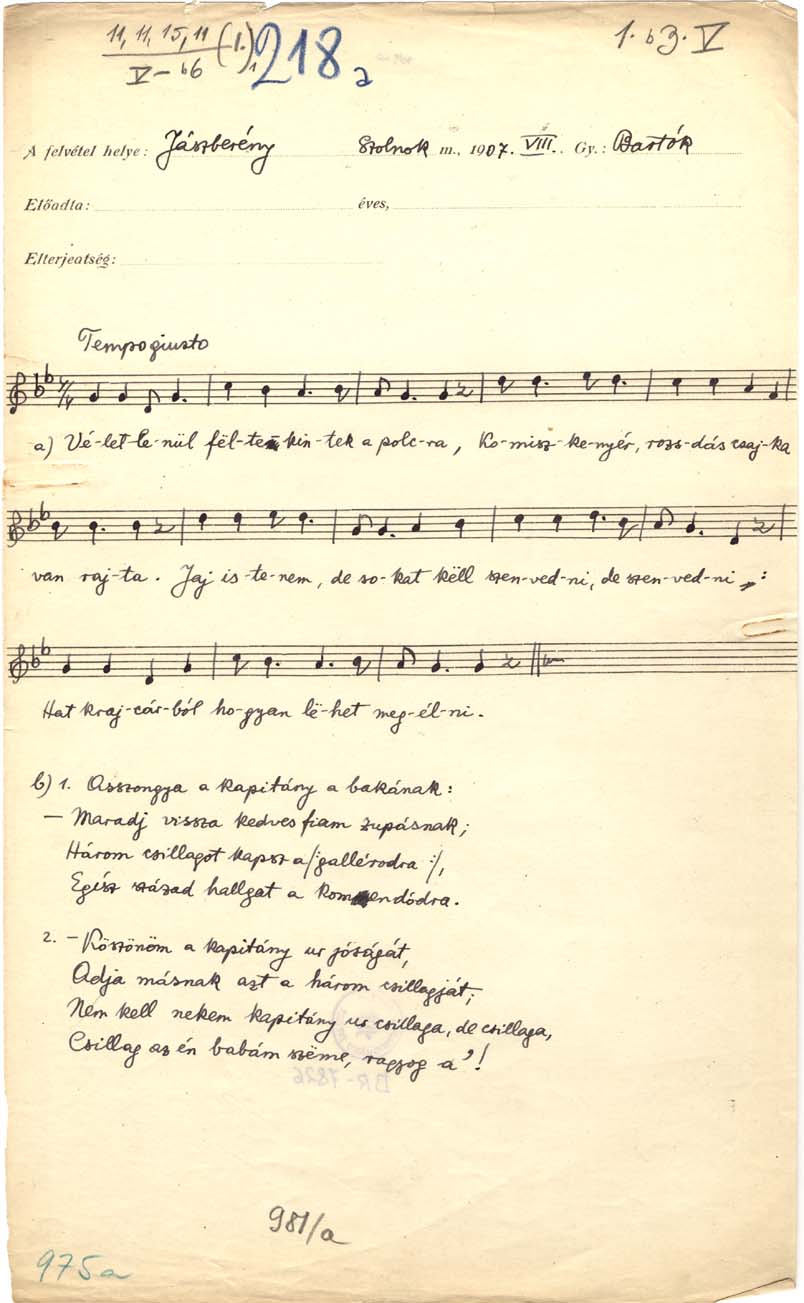 11, 11, 15, 11 (1.)
V – b6
218a
1. b3. V
A felvétel helye: Jászberény Szolnok m., 1907. VIII. Gy.: Bartók
Előadta: éves,
Elterjedtség:
Tempo giusto
a) Vé-let-le-nül föl-te-kin-tek a polc-ra, Ko-misz-ke-nyér, rozs-dás csaj-ka
van raj-ta. Jaj is-te-nem, de so-kat këll szen-ved-ni, de szen-ved-ni
Hat kraj-cár-ból ho-gyan lë-het meg-él-ni.
b) 1. Asszongya a kapitány a bakának:
– Maradj vissza kedves fiam zupásnak;
Három csillagot kapsz a /: gallérodra :/,
Egész század hallgat a komendódra.
2. – Köszönöm a kapitány ur jóságát,
Adja másnak azt a három csillagját;
Nem kell nekem kapitány ur csillaga, de csillaga,
Csillag az én babám szëme, ragyog a'!
BR-7826
981/a
975a